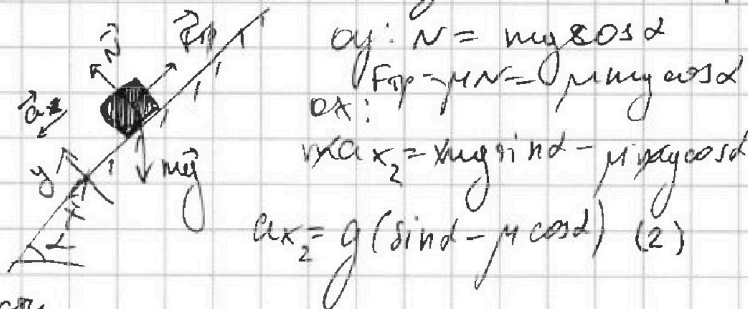 N⃗
F⃗тр
oy: N = mgcosα
Fтр = μN = μmgcosα
ox:
a⃗₂
max₂ = mgsinα - μmgcosα
y
mg⃗
x
α
ax₂ = g(sinα - μcosα) (2)